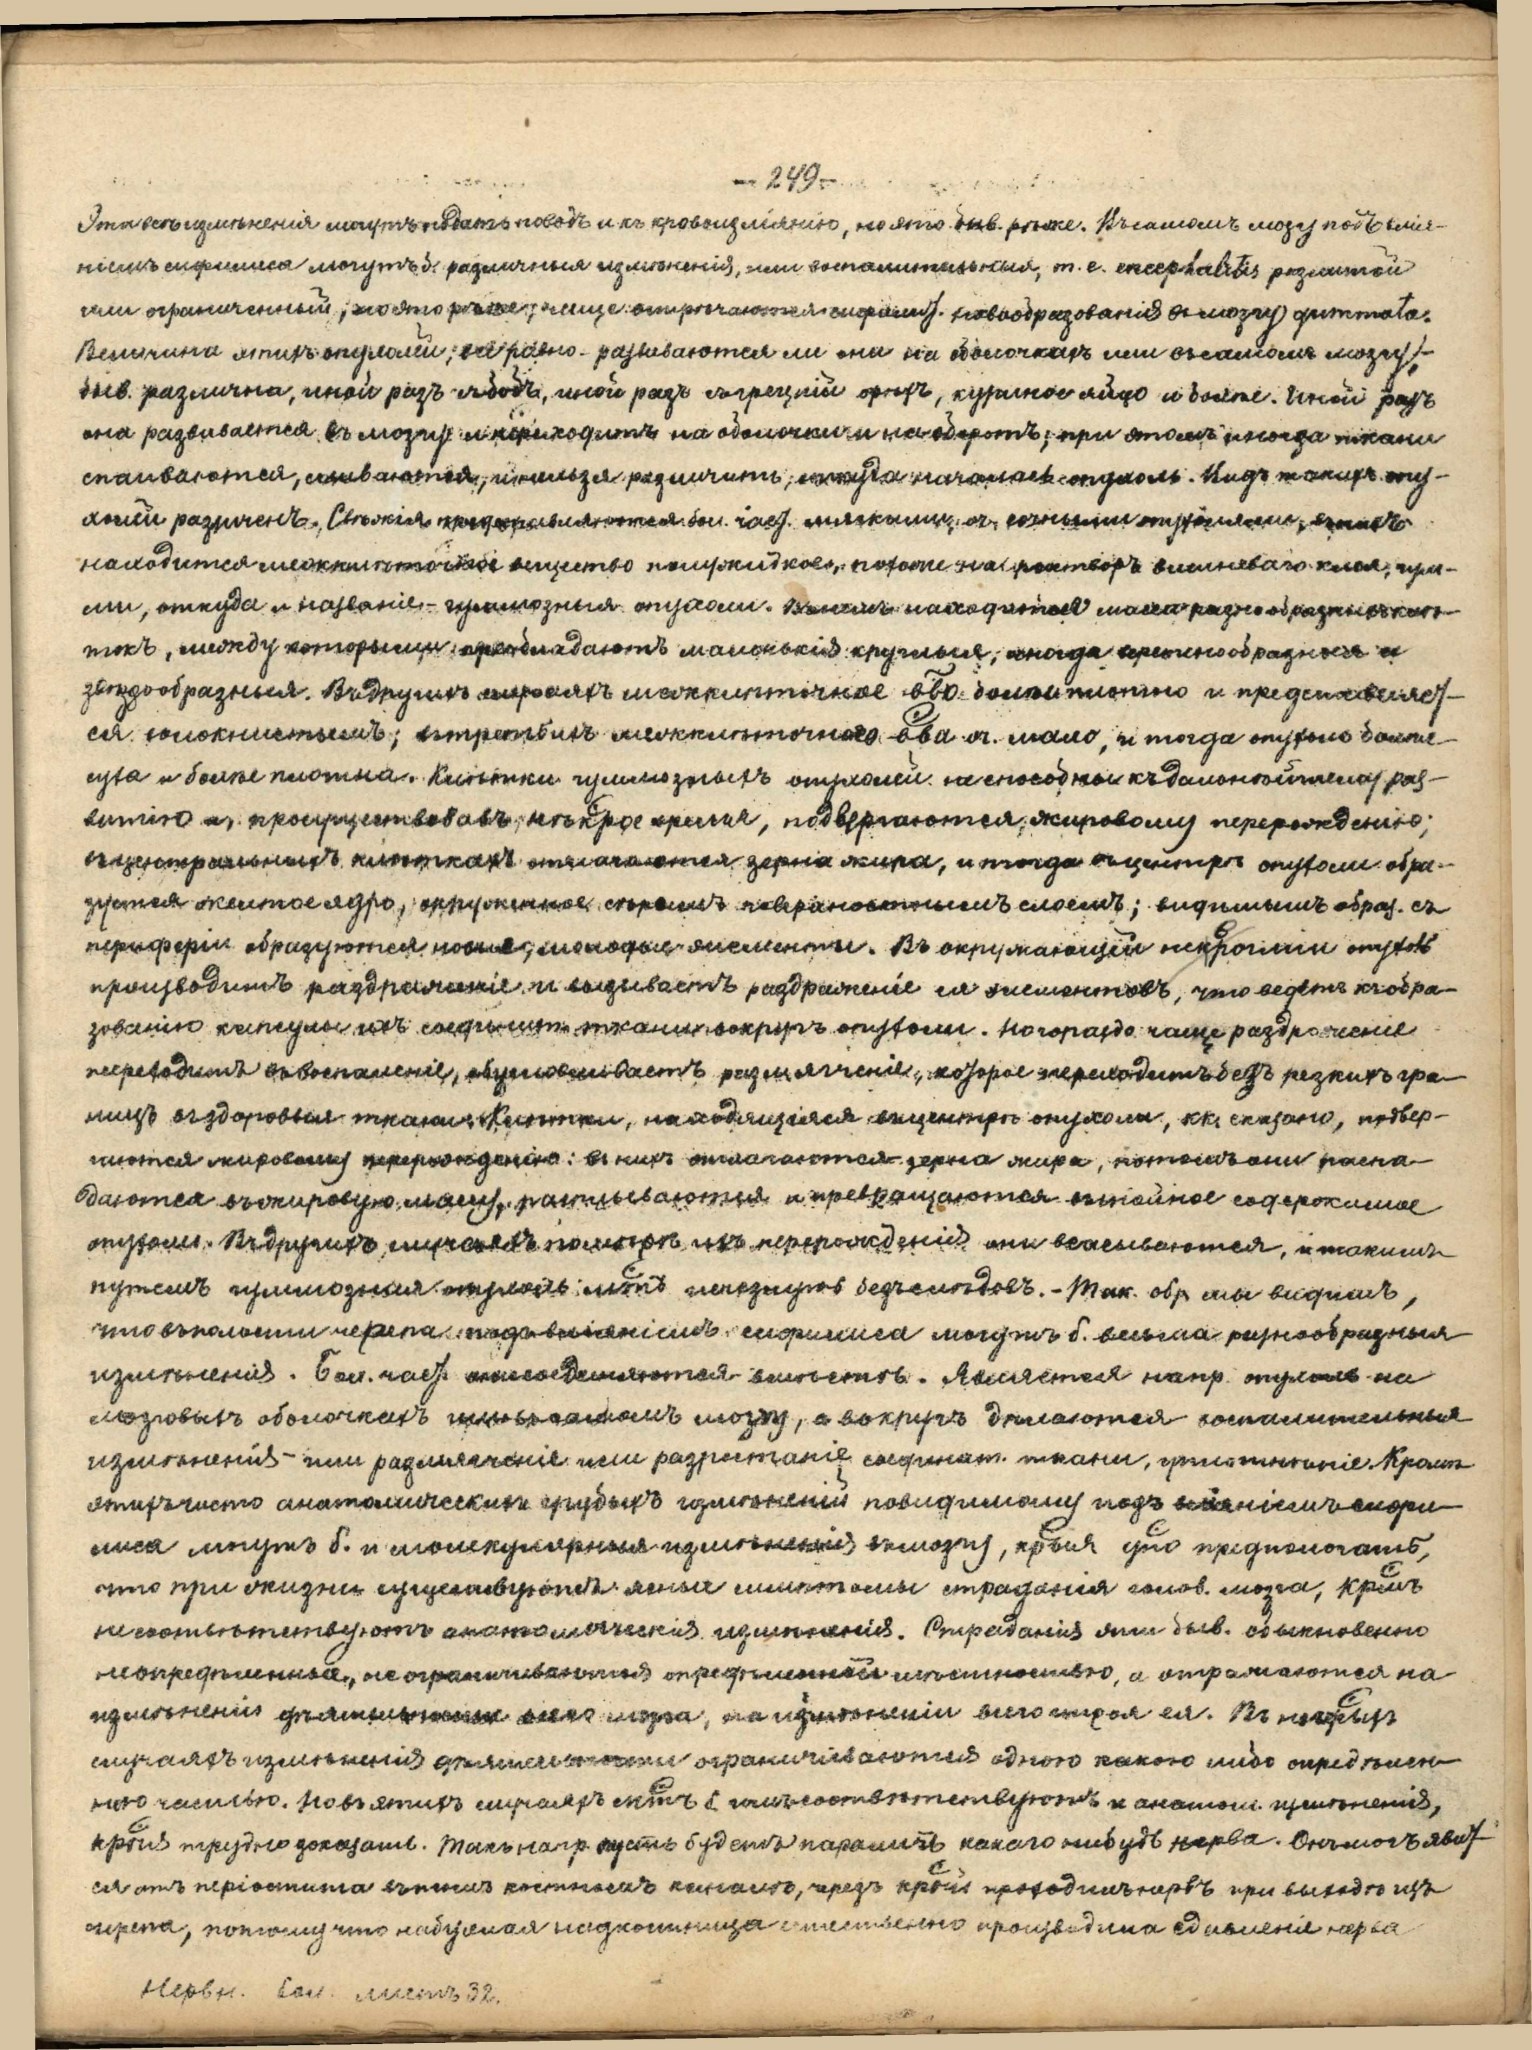 - 249 -
Эти всѣ измѣненія могутъ подать поводъ и къ кровоизліянію, но это быв. рѣже. Въ самомъ мозгу подъ влія-
ніемъ сифилиса могутъ б. различныя измѣненія, или воспалительныя, т. е. encephalitis разлитой
или ограниченный, но это рѣже; чаще встрѣчаются сифилит. новообразованія въ мозгу gummata.
Величина этихъ опухолей, все равно - развиваются ли они на оболочкахъ или въ самомъ мозгу,-
быв. различна, иной разъ съ бобъ, иной разъ съ грецкій орѣхъ, куриное яйцо и болѣе. Иной разъ
она развивается въ мозгу и переходитъ на оболочки и наоборотъ; при этомъ иногда ткани
спаиваются, сливаются, и нельзя различить, откуда началась опухоль. Видъ такихъ опу-
холей различенъ. Свѣжія представляются бол. част. мягкими, оч. сочными опухолями, въ нихъ
находится мелкоклѣточное вещество полужидкое, похожее на растворъ вишневаго клея, гум-
ми, откуда и названіе - гуммозныя опухоли. Въ немъ находится масса разнообразныхъ клѣ-
токъ, между которыми преобладаютъ маленькія круглыя, иногда веретенообразныя и
звѣздообразныя. Въ другихъ случаяхъ мелкоклѣточное в-во болѣе плотно и представляет-
ся волокнистымъ; въ третьихъ мелкоклѣточнаго в-ва оч. мало, и тогда опухоль болѣе
суха и болѣе плотна. Клѣтки гуммозныхъ опухолей не способны къ дальнѣйшему раз-
витію и, просуществовавъ нѣкрое время, подвергаются жировому перерожденію;
въ центральныхъ клѣткахъ отлагаются зерна жира, и тогда въ центрѣ опухоли обра-
зуется желтое ядро, окруженное сѣрымъ поверхностнымъ слоемъ; видимымъ образ. съ
периферіи образуются новые, молодые элементы. Въ окружающей нейрогліи опухоль
производитъ раздраженіе и вызываетъ раздраженіе ея элементовъ, что ведетъ къ обра-
зованію капсулы изъ соединит. ткани вокругъ опухоли. Но гораздо чаще раздраженіе
переходитъ въ воспаленіе, обусловливаетъ размягченіе, которое переходитъ безъ рѣзкихъ гра-
ницъ въ здоровыя ткани. Клѣтки, находящіяся въ центрѣ опухоли, кк. сказано, подвер-
гаются жировому перерожденію: въ нихъ отлагаются зерна жира, потомъ они распа-
даются въ жировую массу, расплываются и превращаются въ гнойное содержимое
опухоли. Въ другихъ случаяхъ по мѣрѣ ихъ перерожденія они всасываются, и такимъ
путемъ гуммозная опухоль мтъ исчезнуть безъ слѣдовъ. - Так. обр. мы видимъ,
что въ полости черепа подъ вліяніемъ сифилиса могутъ б. весьма разнообразныя
измѣненія. Бол. част. они соединяются вмѣстѣ. Является напр. опухоль на
мозговыхъ оболочкахъ или въ самомъ мозгу, а вокругъ дѣлаются воспалительныя
измѣненія - или размягченіе или разростаніе соединит. ткани, уплотненіе. Кромѣ
этихъ чисто анатомическихъ грубыхъ измѣненій повидимому подъ вліяніемъ сифи-
лиса могутъ б. и молекулярныя измѣненія въ мозгу, крыя предполагать,
что при жизни существуютъ ясные симптомы страданія голов. мозга, крмъ
не соотвѣтствуютъ анатомическія измѣненія. Страданія эти быв. обыкновенно
неопредѣленныя, не ограничиваются опредѣленной мѣстностью, а отражаются на
измѣненіи дѣятельности всего мозга, на измѣненіи всего строя ея. Въ нѣкрыхъ
случаяхъ измѣненія дѣятельности ограничиваются одною какою либо опредѣлен-
ною частью. Но въ этихъ случаяхъ мтъ б. имъ соотвѣтствуютъ и анатом. измѣненія,
крыя трудно доказать. Такъ напр. пусть будетъ параличъ какаго нибудь нерва. Онъ могъ явит-
ся отъ періостита въ томъ костномъ каналѣ, чрезъ крый проходитъ нервъ при выходѣ изъ
черепа, потому что набухлая надкостница естественно производила сдавленіе нерва
Нервн. бол. листъ 32.